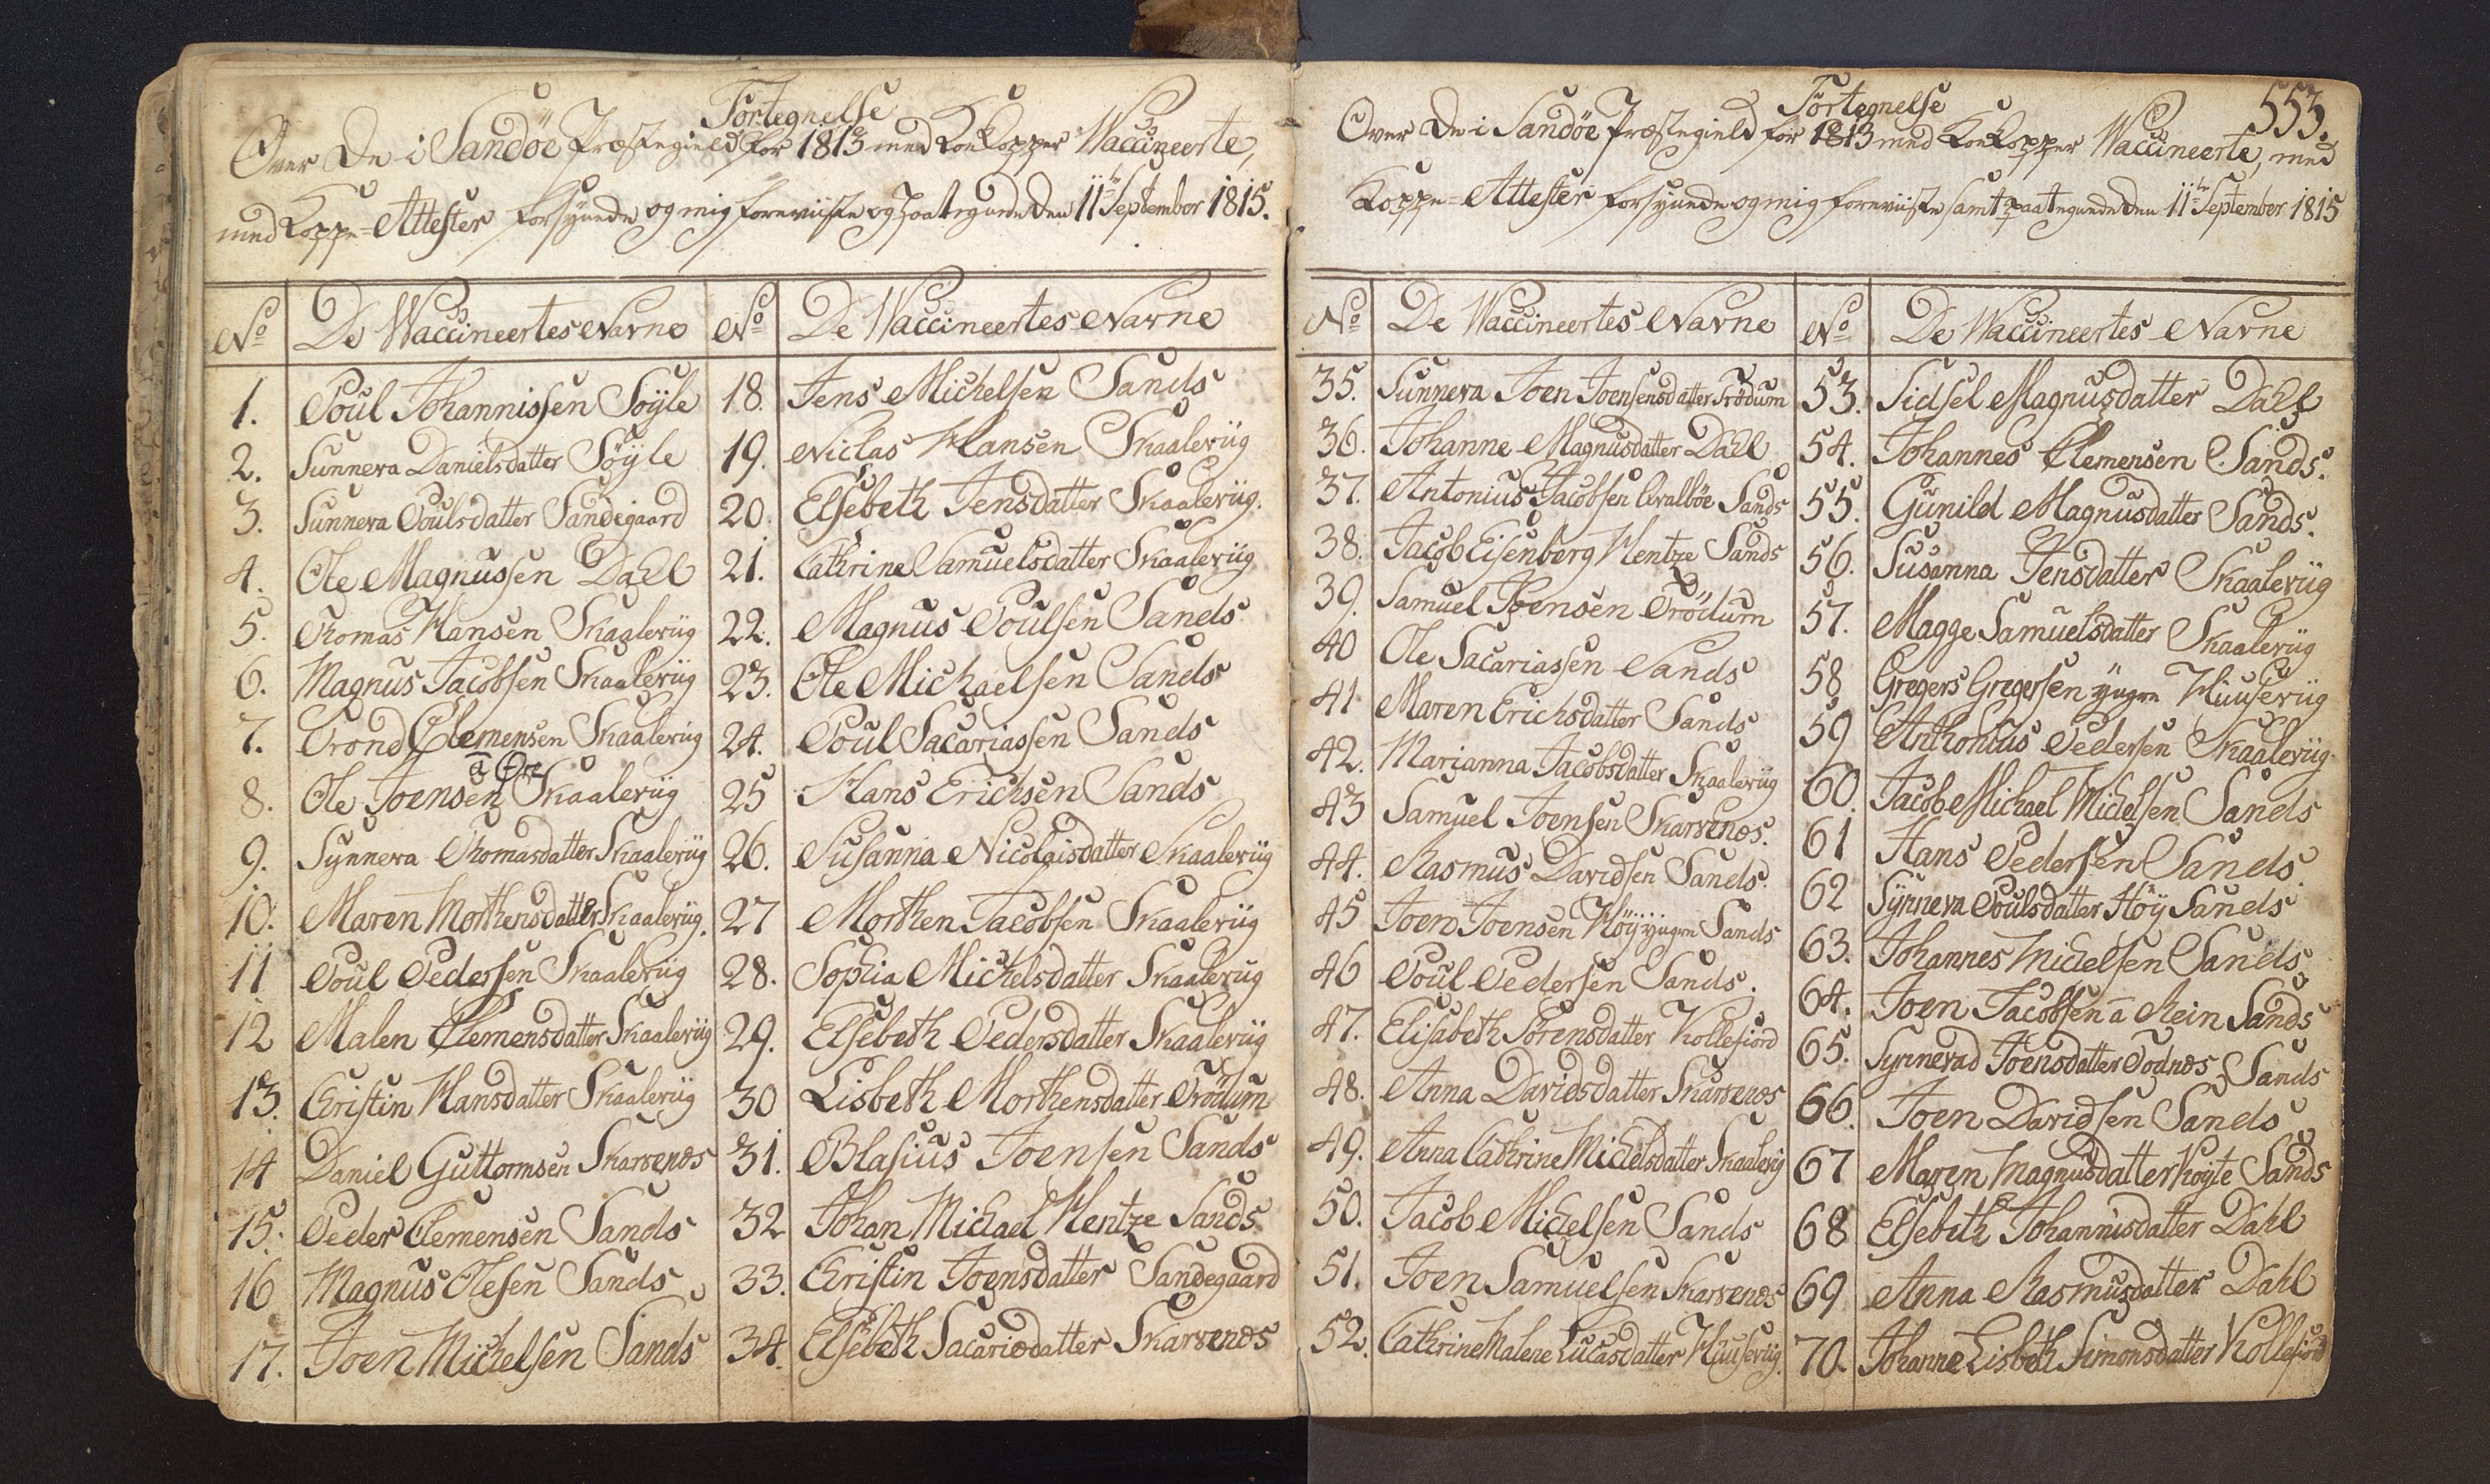 Fortegnelse
Over De i Sandöe Præstegield for 1813 med KoeKopper Waccineerte,
med Koppe=Attester forsynede og mig foreviiste og paategnede den 11te September 1815.
No De Waccineertes Navne No De Waccineertes Navne
1. Poul Johannissen Söyle 18. Jens Michelsen Sands
2. Sunneva Danielsdatter Söyle 19. Niclas Hansen Skaalevüg
3. Sunneva Poulsdatter Sandegaard 20. Elsebeth Jensdatter Skaalevüg.
4. Ole Magnussen Dahl 21. Cathrine Samuelsdatter Skaalevüg
5. Thomas Hansen Skaalevüg 22. Magnus Poulsen Sands
6. Magnus Jacobsen Skaalevüg 23. Ole Michaelsen Sands
7. Trond Clemensen Skaalevüg 24. Poul Sacariassen Sands
8. Ole Joensen Skaalevüg 25 Hans Erichsen Sands
9. Synneva Thomasdatter Skaalevüg 26. Susanna Nicolaisdatter Skaalevüg
10. Maren Morthensdatter Skaalevüg. 27 Morthen Jacobsen Skaalevüg
11 Poul Pedersen Skaalevüg 28. Sophia Michelsdatter Skaalevüg
12 Malen Clemensdatter Skaalevüg 29. Elsebeth Pedersdatter Skaalevüg
13. Christin Hansdatter Skaalevüg 30 Lisbeth Morthensdatter Trödum
14 Daniel Guttormsen Skarvenæs 31. Blasius Joensen Sands
15. Peder Clemensen Sands 32 Johan Michael Hentze Sands
16 Magnus Olesen Sands 33. Christin Joensdatter Sandegaard
17. Joen Michelsen Sands 34. Elsebeth Sacarisdatter Skarvenæs
553.
Fortegnelse
Over De i Sandöe Præstegield for 1813 med KoeKopper Waccineerte, med
Koppe=Attester forsynede og mig foreviiste samt paategnede den 11te September 1815
No De Waccineertes Navne No De Waccineertes Navne
35. Sunneva Joen Joensensdatter Trödum 53. Sidsel Magnusdatter Dahl
36. Johanne Magnusdatter Dahl 54. Johannes Clemensen Sands.
37. Antonius Jacobsen Qvalböe Sands 55. Gunild Magnusdatter Sands.
38. Jacob Eisenberg Hentze Sands 56. Susanna Jensdatter Skaalevüg
39. Samuel Joensen Trödum 57. Magge Samuelsdatter Skaalevüg
40 Ole Sacariassen Sands 58 Gregers Gregersen yngre Huusevüg
41 Maren Erichsdatter Sands 59 Anthonius Pedersen Skaalevüg.
42. Marjanna Jacobsdatter Skaalevüg 60. Jacob Michael Michelsen Sands
43 Samuel Joensen Skarvenæs. 61 Hans Pedersen Sands
44. Rasmus Davidsen Sands. 62 Synneva Poulsdatter Höy Sands
45 Joen Joensen Höy yngre Sands 63. Johannes Michelsen Sands
46 Poul Pedersen Sands. 64. Joen Jacobsen a Rein Sands
47. Elisabeth Sörensdatter Kollefiord 65. Synnevad Joensdatter Todnæs, Sands
48. Anna Davidsdatter Skarvenæs 66. Joen Davidsen Sands
49. Anna Cathrine Michelsdatter Skaalevüg 67 Maren Magnusdatter Höyte Sands
50. Jacob Michelsen Sands 68 Elsebeth Johannisdatter Dahl
51. Joen Samuelsen Skarvenæs 69 Anna Rasmusdatter Dahl
52. Cathrine Malene Lucasdatter Huusevüg. 70. Johanne Lisbeth Simonsdatter Kollefiord